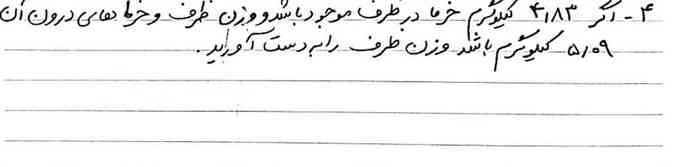 ۴- اگر ۴/۸۳ کیلوگرم خرما در ظرف موجود باشد و وزن ظرف و خرما های درون آن
۵/۰۹ کیلوگرم باشد وزن ظرف را به دست آورید.